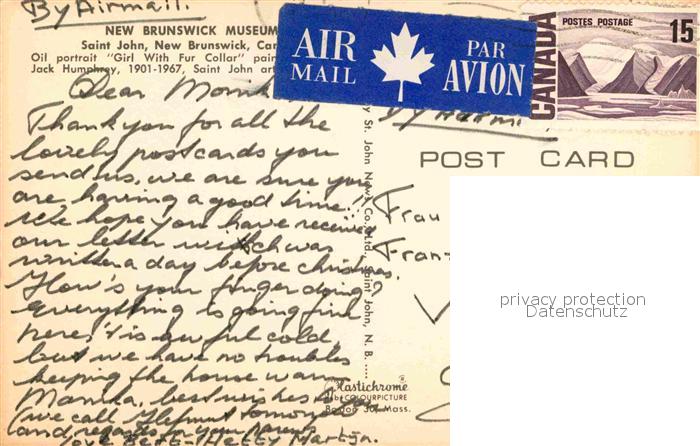 By Airmail.
NEW BRUNSWICK MUSEUM
Saint John, New Brunswick, Can
Oil portrait "Girl With Fur Collar" pain
Jack Humphrey, 1901-1967, Saint John art
AIR MAIL
PAR AVION
CANADA
POSTES POSTAGE
15
POST CARD
Dear Monika
Thank you for all the
lovely postcards you
send us, we are sure you
are having a good time!!
We hope you have received
our letter witch was
written a day before christmas.
How's your finger doing?
everything is going fine
here, 't is awful cold,
but we have no troubles
keeping the house warm
Monika, best wishes to you
(we call Helmut tomorrow
and regards for your parents
love Bert - Hetty Martijn.
By Airm.
y St. John News Co., Ltd., Saint John, N. B.
Plastichrome
by COLOURPICTURE
Boston 30, Mass.
Frau
Fran
privacy protection
Datenschutz